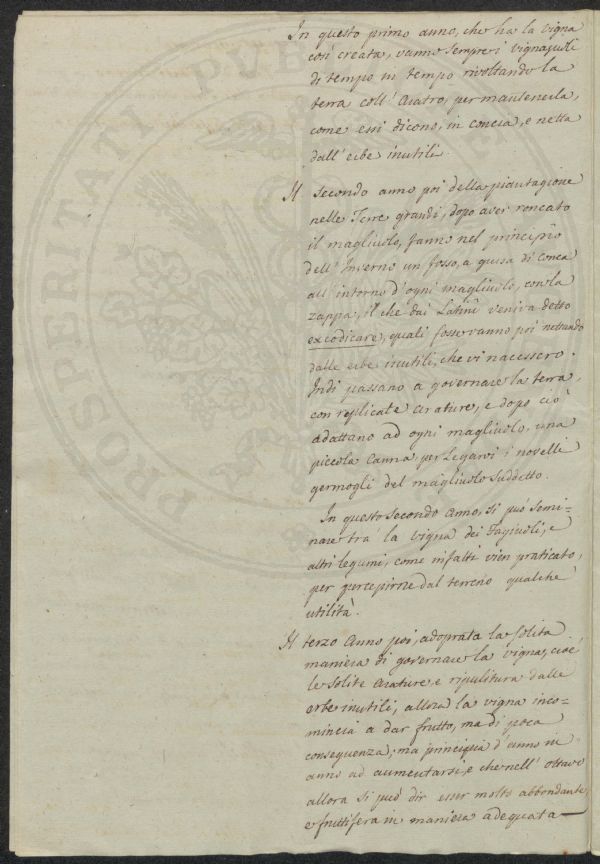 In questo primo anno, che ha la vigna
così creata, vanno sempre i vignajuoli
di tempo in tempo rivoltando la
terra coll' Aratro, per mantenerla,
come essi dicono, in concia, e netta
dall' erbe inutili.
Il secondo anno poi della piantagione
nelle Terre grandi, dopo aver roncato
il magliuolo, fanno nel principio
dell' Inverno un fosso, a guisa di conca
all' intorno d'ogni magliuolo, con la
zappa, il che dai Latini veniva detto
excodicare, quali fosse vanno poi nettando
dalle erbe inutili, che vi nacessero.
Indi passano a governare la terra,
con replicate arature, e dopo ciò
adattano ad ogni magliuolo, una
piccola canna, per Legarvi i novelli
germogli del magliuolo suddetto.
In questo secondo anno, si può semi-
nare trà la vigna dei Fagiuoli, e
altri legumi, come infatti vien praticato,
per percepirne dal terreno qualche
utilità.
Il terzo Anno poi, adoprata la solita
maniera di governare la vigna, cioè
le solite arature e ripulitura dalle
erbe inutili, allora la vigna inco-
mincia a dar frutto, ma di poca
conseguenza; ma principia d'anno in
anno ad aumentarsi, e che nell' ottavo
allora si può dir esser molto abbondante,
e fruttifera in maniera adequata
PROSPERITATI PUBLI